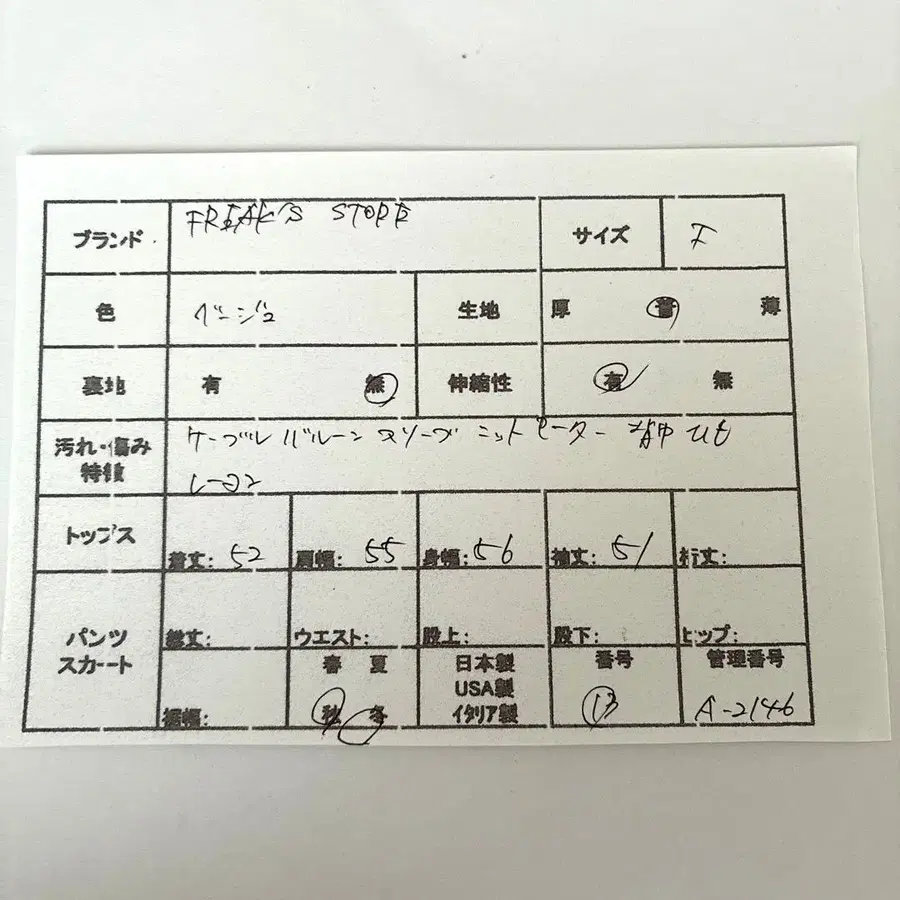 ブランド FREAK'S STORE サイズ F
色 ベージュ 生地 厚 普 薄
裏地 有 無 伸縮性 有 無
汚れ・傷み ケーブル バルーン スリーブ ニット セーター 背中 ひも
特徴 レーヨン
トップス 着丈: 52 肩幅: 55 身幅: 56 袖丈: 51 裄丈:
パンツ 総丈: ウエスト: 股上: 股下: ヒップ:
スカート 春 夏 日本製 番号 管理番号
USA製
裾幅: 秋 冬 イタリア製 13 A-2146